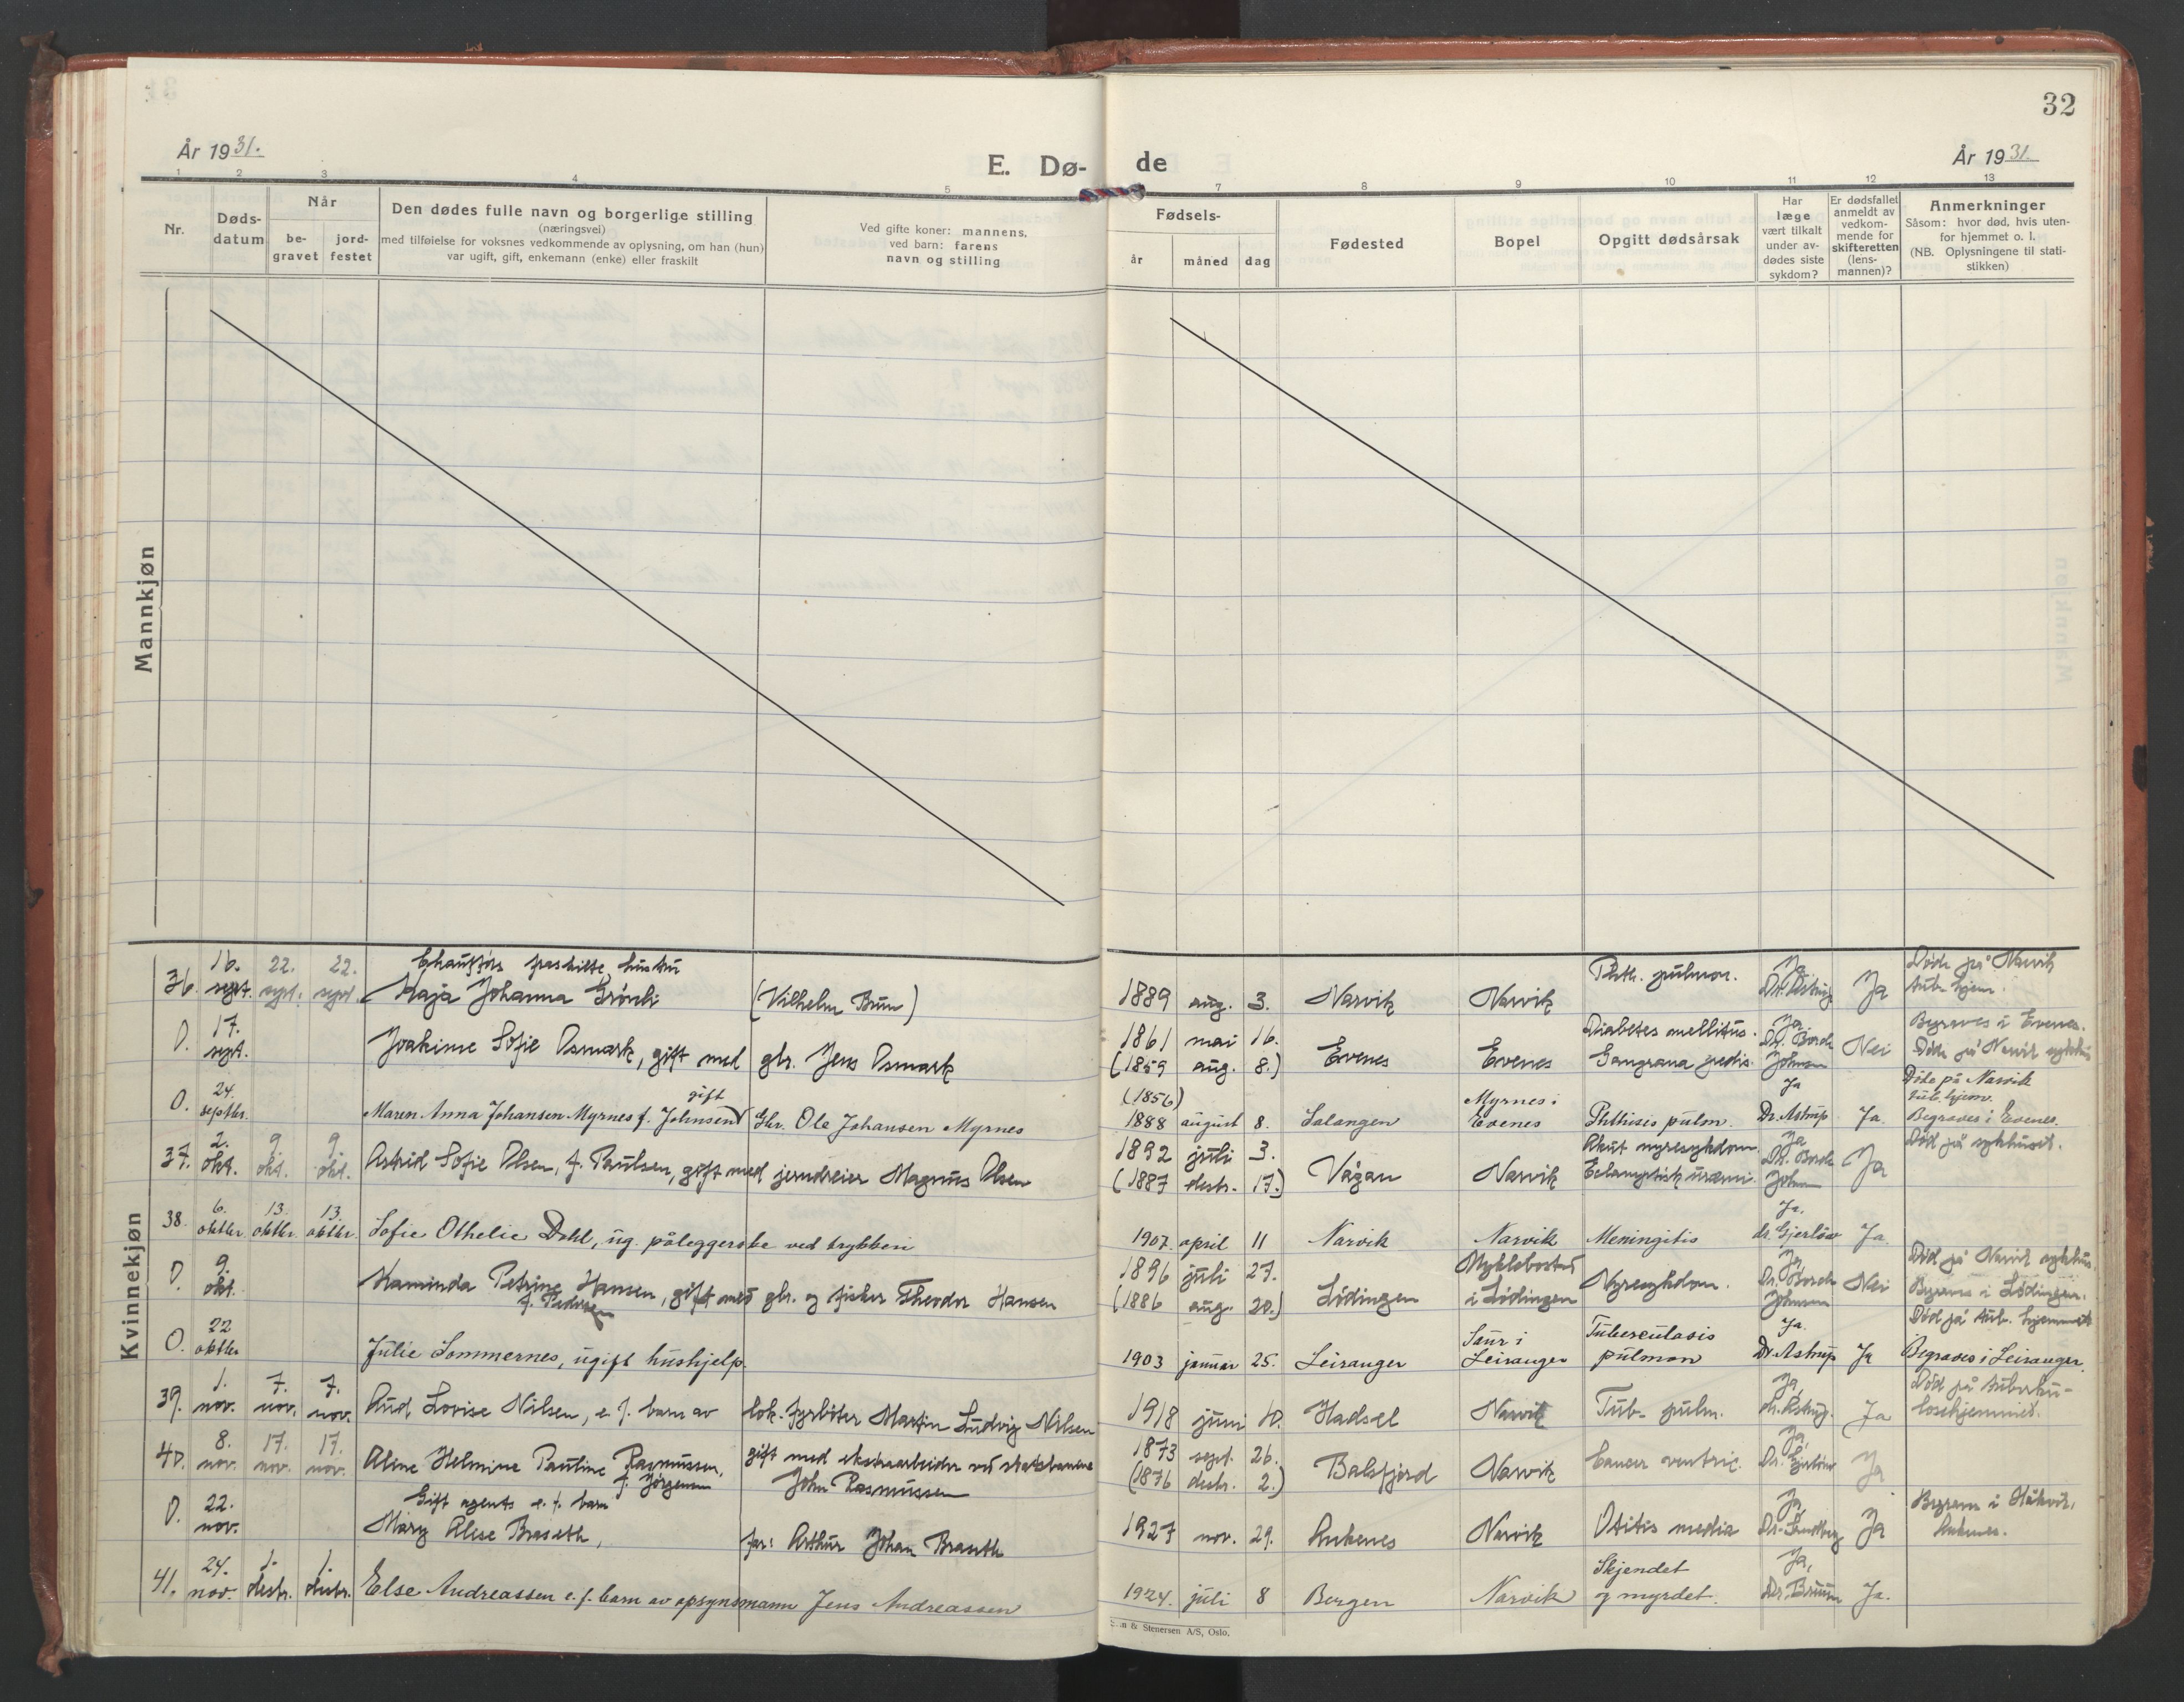 32
År 1931.
E. Dø- de
År 1931.
1 2 3 4 5 7 8 9 10 11 12 13
Nr.
Døds-
datum
Når
be-
gravet
jord-
festet
Den dødes fulle navn og borgerlige stilling
(næringsvei)
med tilføielse for voksnes vedkommende av oplysning, om han (hun)
var ugift, gift, enkemann (enke) eller fraskilt
Ved gifte koner: mannens,
ved barn: farens
navn og stilling
Fødsels-
år måned dag
Fødested
Bopel
Opgitt dødsårsak
Har
læge
vært tilkalt
under av-
dødes siste
sykdom?
Er dødsfallet
anmeldt av
vedkom-
mende for
skifteretten
(lens-
mannen)?
Anmerkninger
Såsom: hvor død, hvis uten-
for hjemmet o. l.
(NB. Oplysningene til stati-
stikken)
Mannkjøn
Kvinnekjøn
36. 16. sept. 22. sept. 22. sept.
Chaufförs fraskilte hustru
Kaja Johanna Grönli (Vilhelm Brun)
1889 aug. 3. Narvik Narvik Phth. pulmon. Ja Dr. Astrup Ja
Döde på Narvik
tub. hjem.
0. 17. sept.
Joakime Sofie Osmark, gift med gbr. Jens Osmark
1861 mai 16.
(1859 aug. 8.) Evenes Evenes
Diabetes mellitus.
Gangræna pedis.
Ja Dr. Borch Johnsen Nei
Begraves i Evenes.
Döde på Narvik sykehus
0. 24. septbr.
gift
Maren Anna Johansen Myrnes f. Johnsen Gbr. Ole Johansen Myrnes
(1856)
1888 august 8. Salangen
Myrnes i
Evenes
Phthisis pulm. Ja Dr. Astrup Ja.
Döde på Narvik
tub. hjem.
Begraves i Evenes.
37. 2. okt. 9. okt. 9. okt.
Astrid Sofie Olsen, f. Paulsen, gift med jerndreier Magnus Olsen
1892 juli 3.
(1887 desbr. 17.) Vågan Narvik
Akut nyresykdom
Eclamptisk uræmi.
Ja Dr. Borch Johnsen Ja
Död på sykehuset.
38. 6. oktbr. 13. oktbr. 13. oktbr.
Sofie Othelie Dahl, ug. påleggerske ved trykkeri
1907. april 11 Narvik Narvik Meningitis Ja. dr. Gjerlöw Ja.
0. 9. okt.
Kaminda Petrine Hansen, gift med gbr. og fisker Theodor Hansen
f. Pedersen
1896 juli 27.
(1886 aug. 20.) Lödingen
Myklebostad
i Lödingen
Nyresykdom. Ja Dr. Borch Johnsen Nei
Död på Narvik sykehus.
Begraves i Lödingen.
0. 22 oktbr
Julie Sommernes, ugift hushjelp.
1903 januar 25. Leiranger
Saur i
Leiranger
Tuberculosis
pulmon
Ja. Dr. Astrup Ja
Död på tub. hjemmet
Begraves i Leiranger.
39. 1. nov. 7. nov. 7. nov.
Aud Lovise Nilsen, e. f. barn av lok. fyrböter Martin Ludvig Nilsen
1918 juni 10. Hadsel Narvik Tub. pulm. Ja, dr. Astrup. Ja
Död på tuberku-
losehjemmet.
40. 8. nov. 17. nov. 17. nov.
Aline Helmine Pauline Rasmussen, gift med ekstraarbeider ved statsbanene
f. Jörgensen John Rasmussen
1873 sept. 26.
(1876 desbr. 2.) Balsfjord Narvik Cancer ventric. Ja, Dr. Gjerlöw Ja
0. 22. nov.
Gift agents e. f. barn
Mary Alese Braseth, far: Arthur Johan Braseth
1927 nov. 29. Ankenes Narvik Otitis media Ja, Dr. Sundberg Ja
Begraves i Håkvik,
Ankenes.
41. 24. nov. 1. desbr. 1. desbr.
Else Andreassen e. f. barn av opsynsmann Jens Andreassen
1924. juli 8 Bergen Narvik
Skjendet
og myrdet.
Ja, Dr. Bruun Ja.
& Stenersen A/S, Oslo.